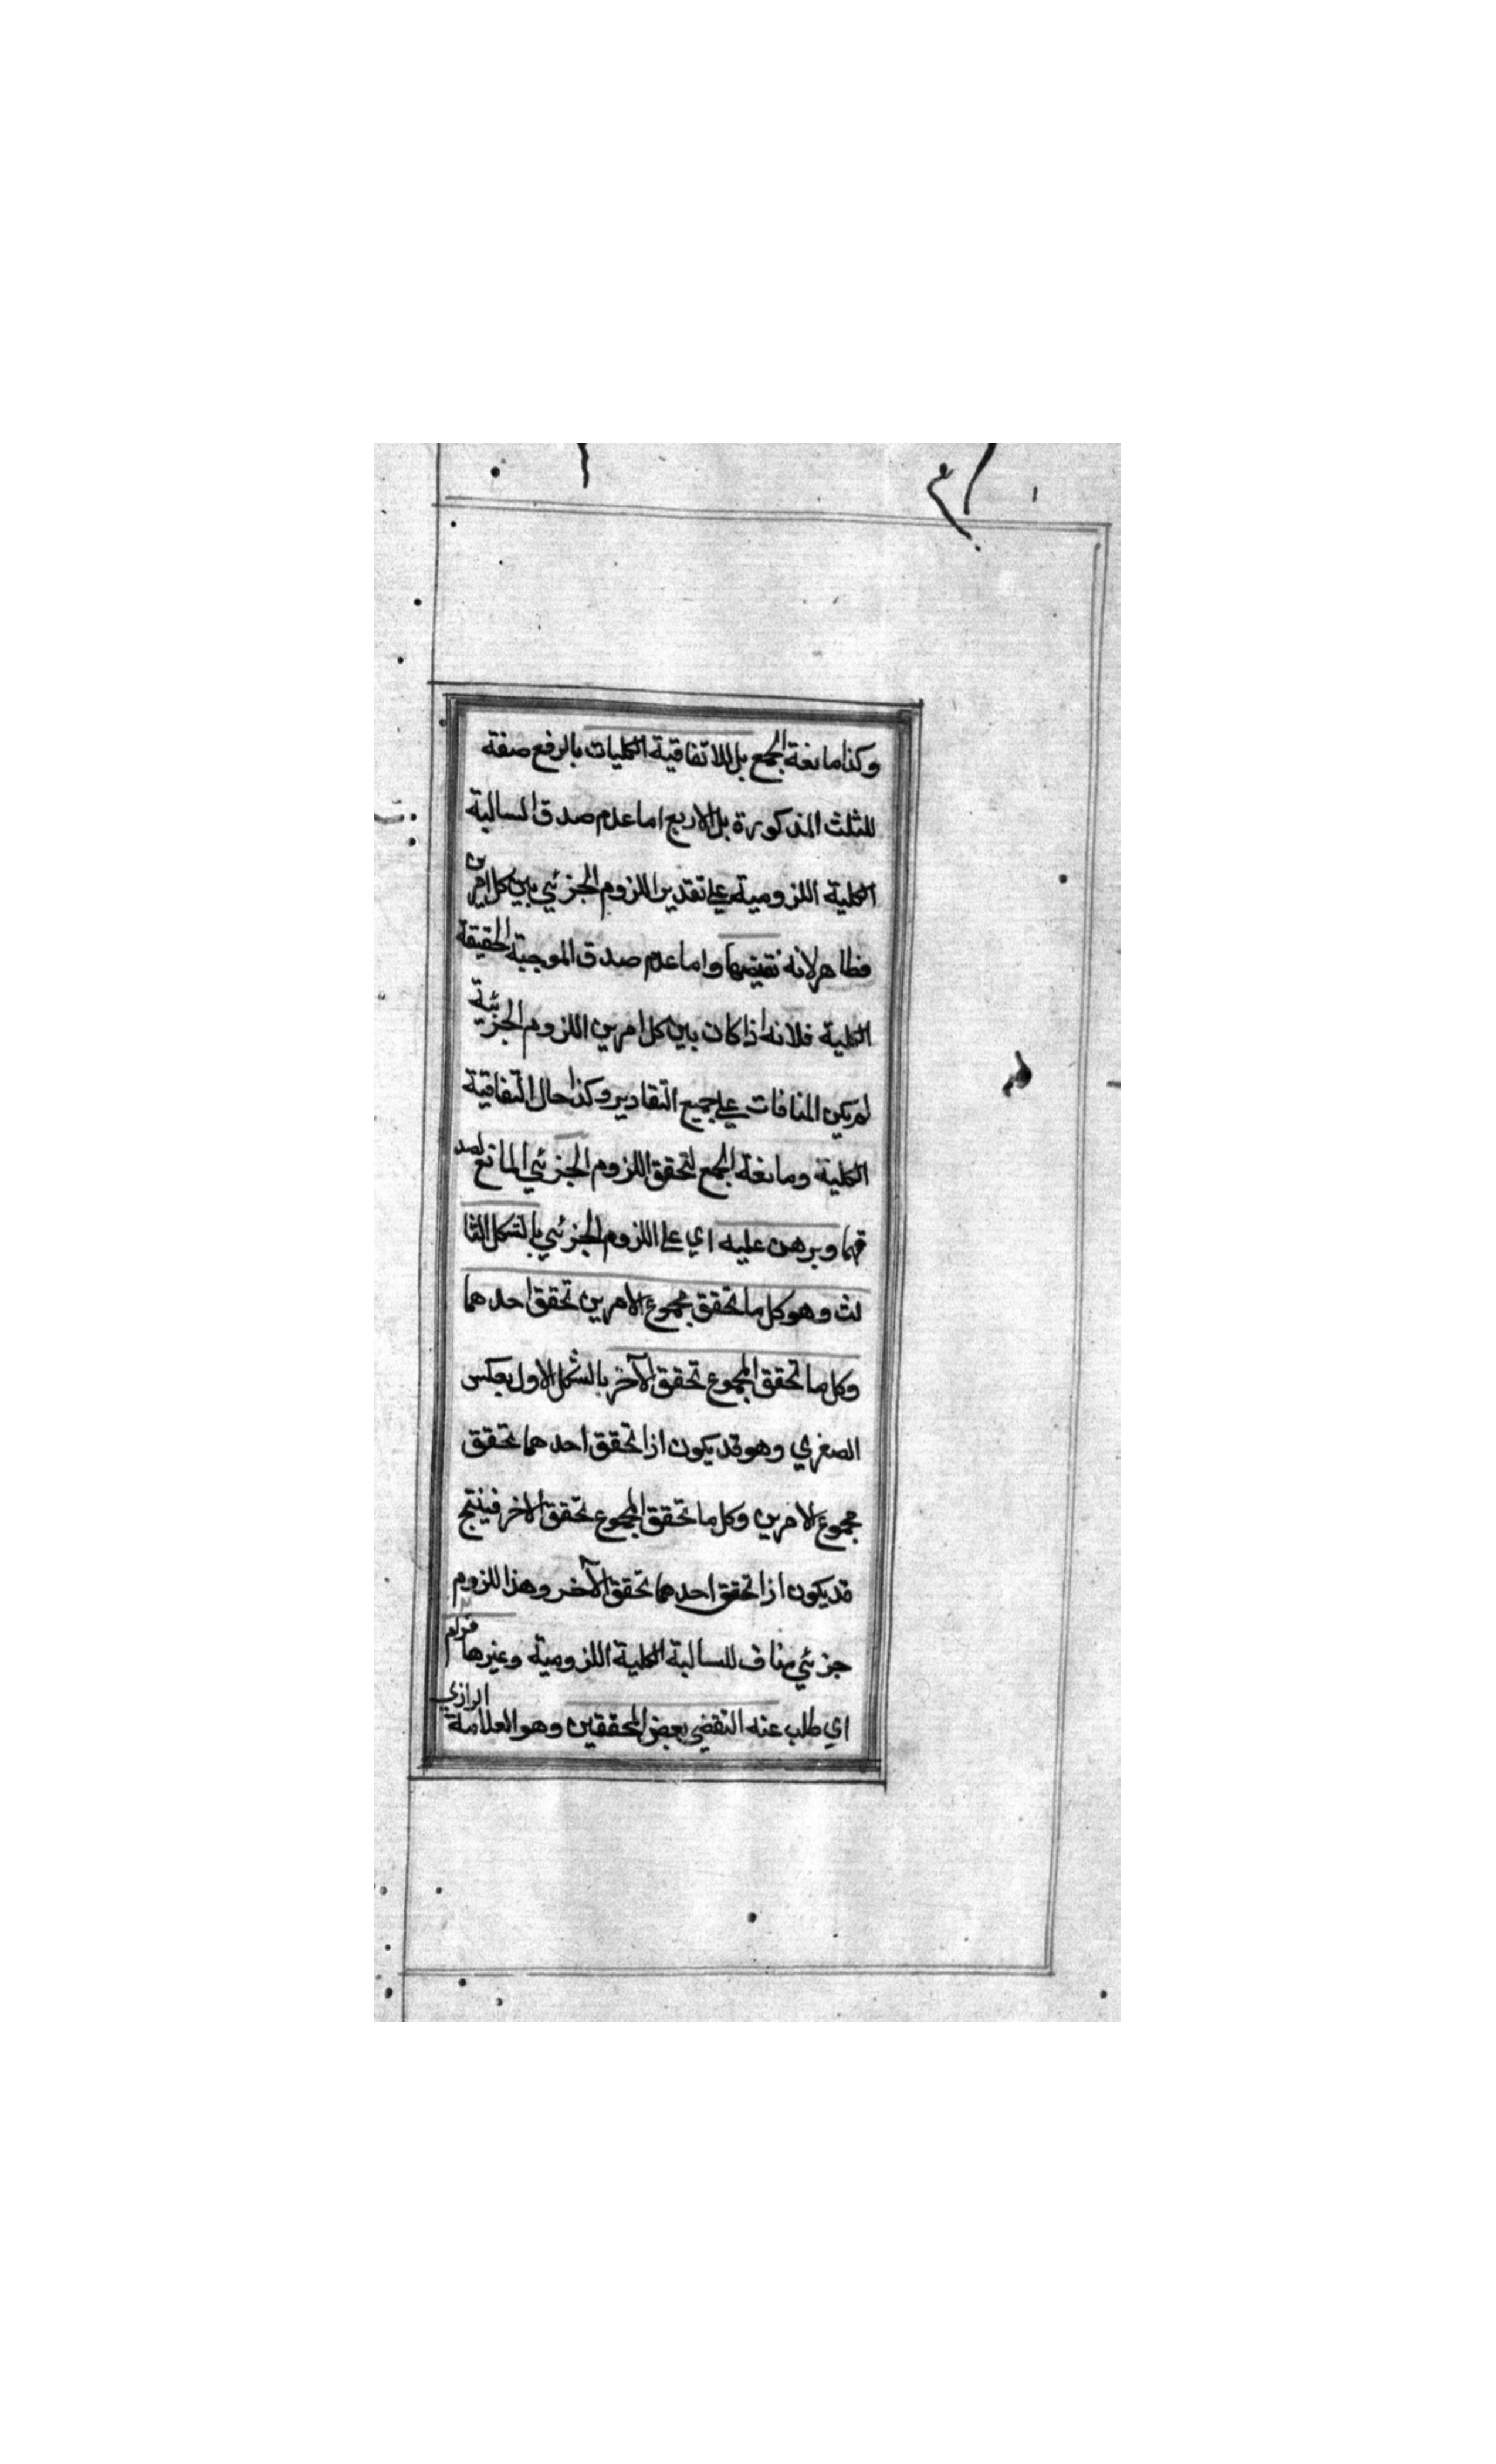 وكذا مانعة الجمع بل للاتفاقية الكليات بالرفع صفة
للثلث المذكورة بل الاربع اما عدم صدق السالبة
الكلية اللزومية على تقدير اللزوم الجزئي بين كل امرين
فظاهر لانه نقيضها واما عدم صدق الموجبة الحقيقة
الكلية فلانه اذا كان بين كل امرين اللزوم الجزئية
لم يكن المنافات على جميع التقادير وكذا حال اتفاقية
الكلية ومانعة الجمع لتحقق اللزوم الجزئي المانع لصد
قهما وبرهن عليه اي على اللزوم الجزئي بالشكل الثا
لث وهو كل ما تحقق مجموع الامرين تحقق احدهما
وكل ما تحقق المجموع تحقق الآخر بالشكل الاول بعكس
الصغري وهو قد يكون اذا تحقق احدهما تحقق
مجموع الامرين وكل ما تحقق المجموع تحقق الاخر فينتج
قد يكون اذا تحقق احدهما تحقق الآخر وهذا اللزوم
جزئي مناف للسالبة الكلية اللزومية وغيرها فرام
اي طلب عنه التفضي بعض المحققين وهو العلامة الرازي